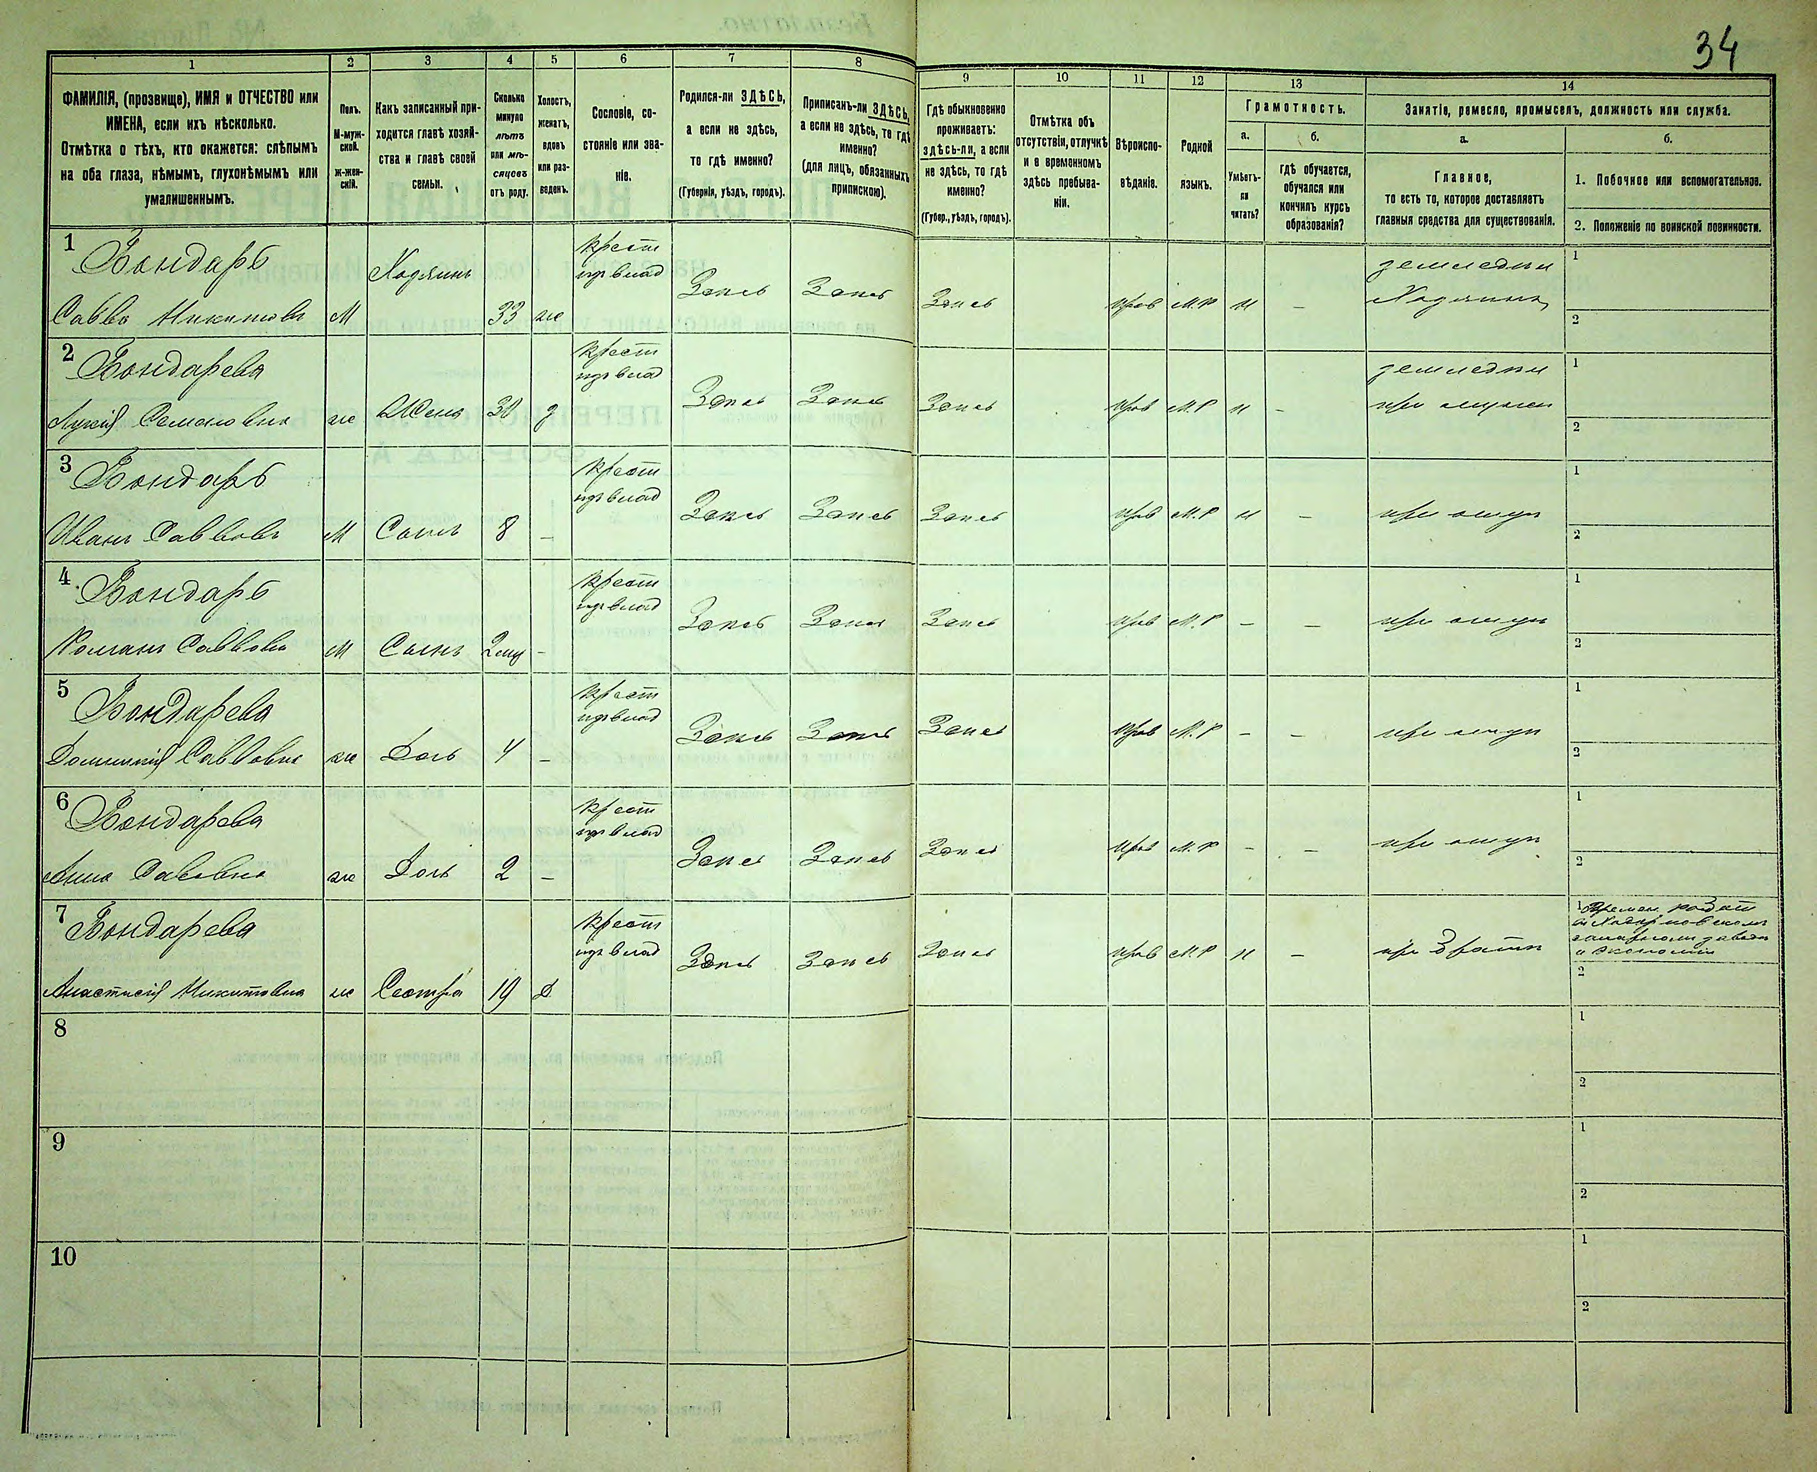 34
1 2 3 4 5 6 7 8 9 10 11 12 13 14
ФАМИЛІЯ, (прозвище), ИМЯ и ОТЧЕСТВО или
ИМЕНА, если ихъ нѣсколько.
Отмѣтка о тѣхъ, кто окажется: слѣпымъ
на оба глаза, нѣмымъ, глухонѣмымъ или
умалишеннымъ.
Полъ.
М-муж-
ской.
Ж-жен-
скій.
Какъ записанный при-
ходится главѣ хозяй-
ства и главѣ своей
семьи.
Сколько
минуло
лѣтъ
или мѣ-
сяцевъ
отъ роду.
Холостъ,
женатъ,
вдовъ
или раз-
веденъ.
Сословіе, со-
стояніе или зва-
ніе.
Родился-ли ЗДѢСЬ,
а если не здѣсь,
то гдѣ именно?
(Губернія, уѣздъ, городъ).
Приписанъ-ли ЗДѢСЬ,
а если не здѣсь, то гдѣ
именно?
(для лицъ, обязанныхъ
припискою).
Гдѣ обыкновенно
проживаетъ:
здѣсь-ли, а если
не здѣсь, то гдѣ
именно?
(Губер., уѣздъ, городъ).
Отмѣтка объ
отсутствіи, отлучкѣ
и о временномъ
здѣсь пребыва-
ніи.
Вѣроиспо-
вѣданіе.
Родной
языкъ.
Грамотность.
а.
Умѣетъ-
ли
читать?
б.
гдѣ обучается,
обучался или
кончилъ курсъ
образованія?
Занятіе, ремесло, промыселъ, должность или служба.
а.
Главное,
то есть то, которое доставляетъ
главныя средства для существованія.
б.
1. Побочное или вспомогательное.
2. Положеніе по воинской повинности.
1 Бондарь Хозяинъ крест
Савва Никитовъ М 33 ж Здесь Здесь Здесь прав М.Р н – Хозяинъ
1
2
2 Бондарева крест
Семеновна ж Жена 30 з Здесь Здесь Здесь прав М.Р н –
1
2
3 Бондарь крест
Иванъ Саввовъ М Сынъ 8 – Здесь Здесь Здесь прав М.Р н – при отцу
1
2
4 Бондарь крест
Романъ Саввовъ М Сынъ – Здесь Здесь Здесь прав М.Р – – при отцу
1
2
5 Бондарева крест
Саввовна ж Дочь 4 – Здесь Здесь Здесь прав М.Р – – при отцу
1
2
6 Бондарева крест
Анна Саввовна ж Дочь 2 – Здесь Здесь Здесь прав М.Р – – при отцу
1
2
7 Бондарева крест
Анастасія Никитовна ж Сестра 19 д Здесь Здесь Здесь прав М.Р н –
1
2
8
1
2
9
1
2
10
1
2